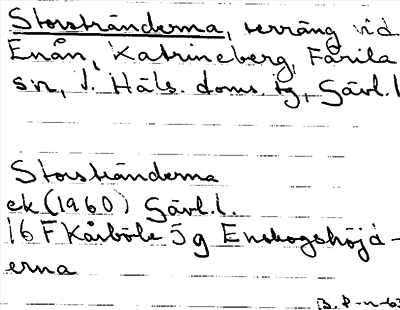 Storstränderna, terräng vid
Enån, Katrineberg, Färila
sn, V. Häls. doms. tg, Gävl. l
Storstränderna
ek (1960) Gävl. l.
16 F Kårböle 5 g Enskogshöjd-
erna